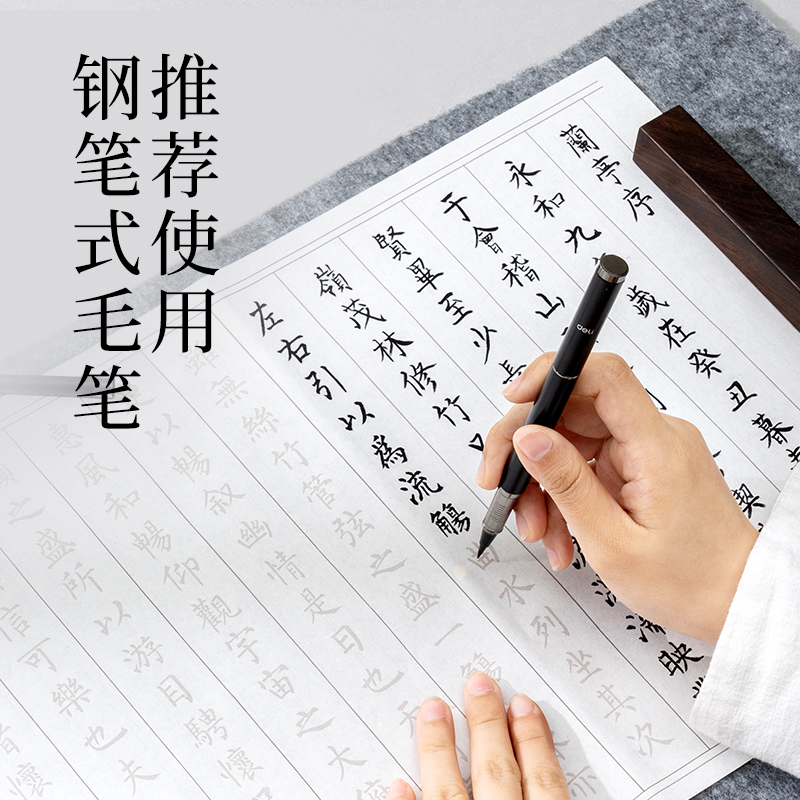 推荐使用
钢笔式毛笔
蘭亭序
永和九歲在癸丑暮
于會稽山禊
賢畢至少
嶺茂林修竹映
左右引以爲流觴曲水列坐其次
無絲竹管弦之盛一觴
以暢叙幽情是日也天
風和暢仰觀宇宙之大
之盛所以游目騁懷
信可樂也夫
deli